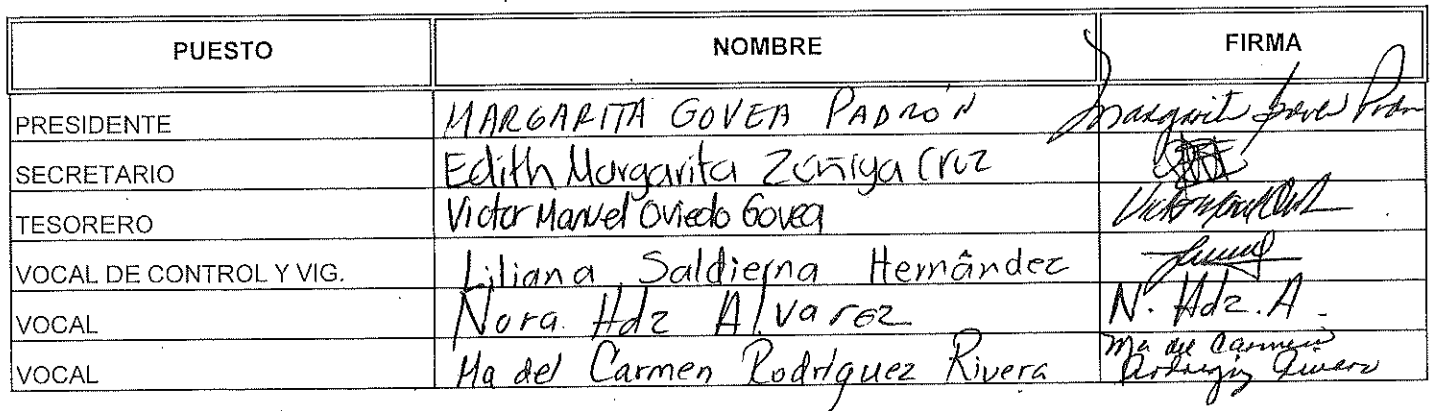 PUESTO NOMBRE FIRMA
PRESIDENTE MARGARITA GOVEA PADRÓN Margarit Govea Padrn
SECRETARIO Edith Margarita Zúñiga Cruz
TESORERO Victor Manuel Oviedo Govea
VOCAL DE CONTROL Y VIG. Liliana Saldierna Hernández
VOCAL Nora Hdz Alvarez N. Hdz. A.
VOCAL Ma del Carmen Rodríguez Rivera Ma del Carmen